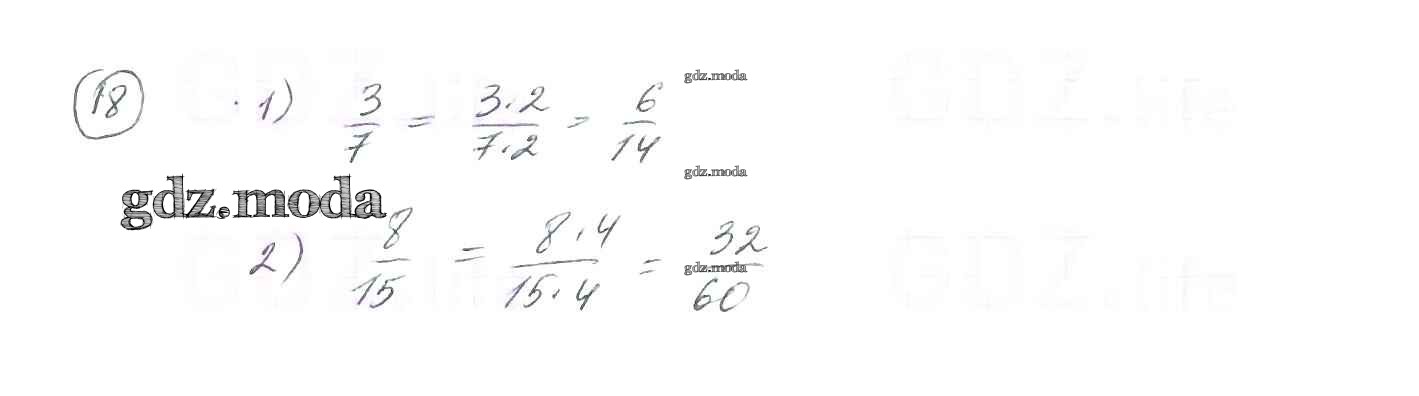 18 1) 3/7 = 3·2/7·2 = 6/14 gdz.moda
gdz.moda gdz.moda
2) 8/15 = 8·4/15·4 = 32/60 gdz.moda
GDZ.life GDZ.life
GDZ.life GDZ.life